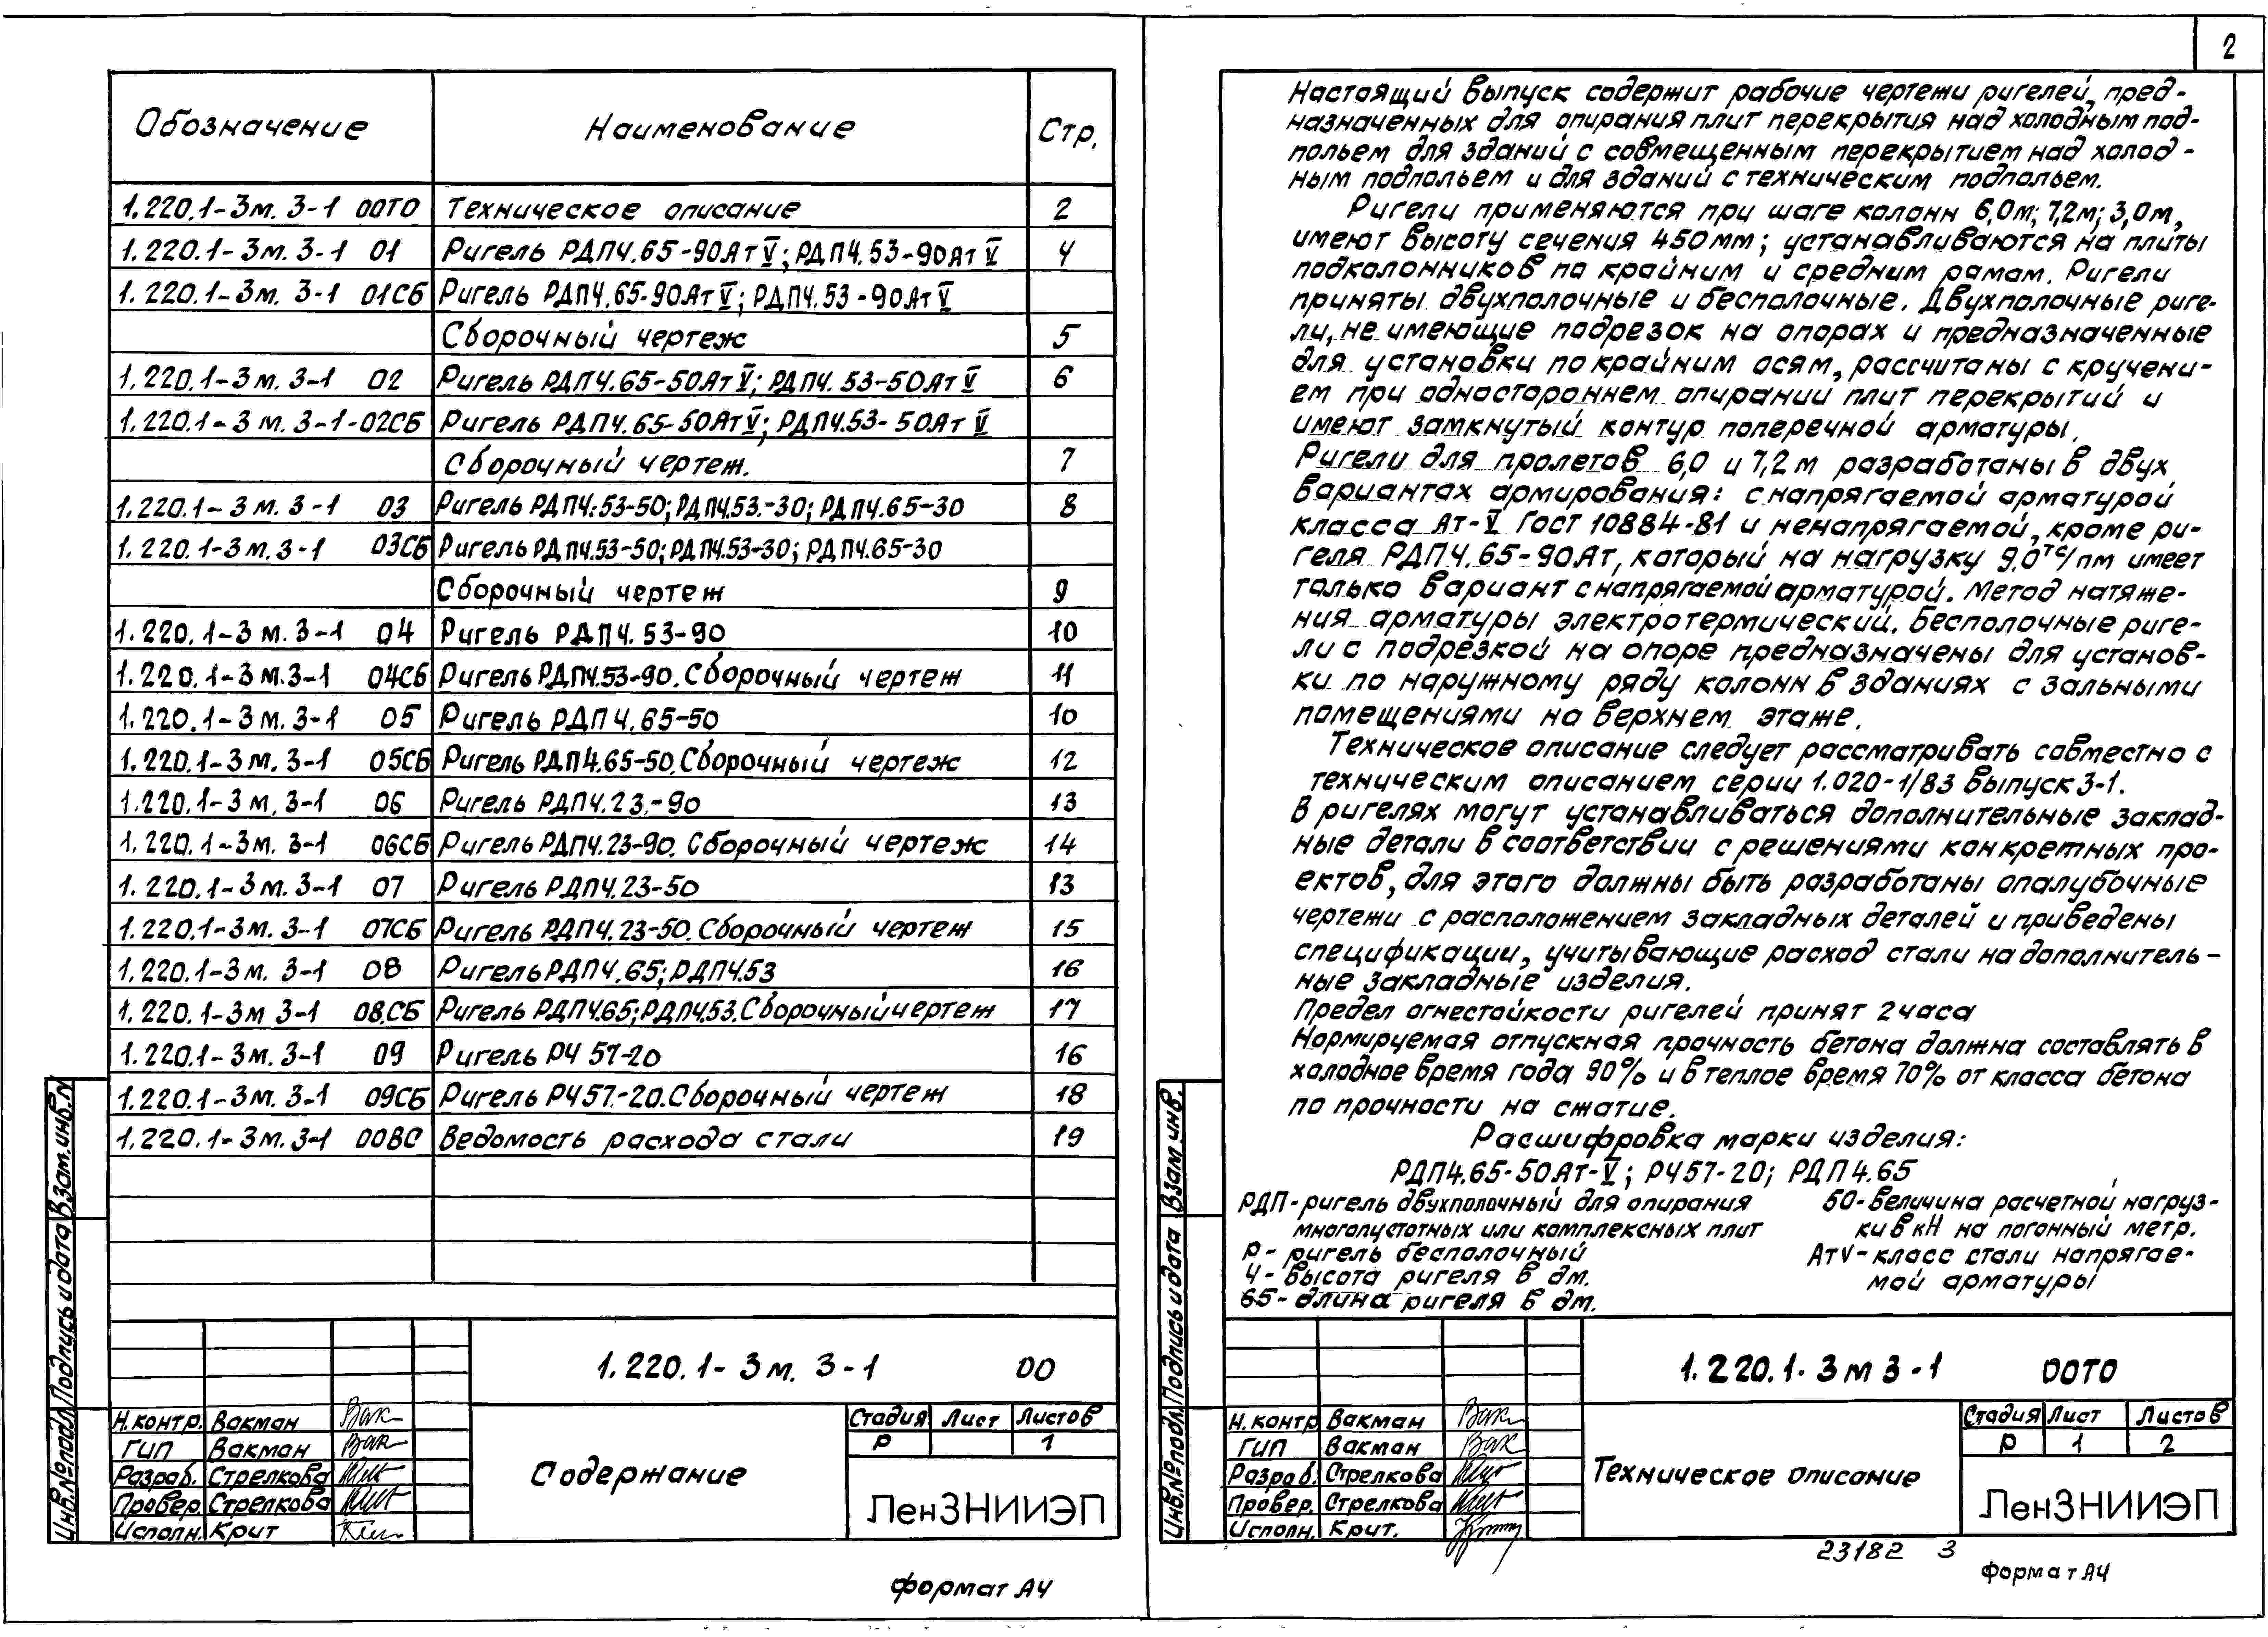 Обозначение Наименование Стр.
1.220.1-3м. 3-1 00ТО Техническое описание 2
1.220.1-3м. 3-1 01 Ригель РДП4.65-90АтV; РДП4.53-90АтV 4
1.220.1-3м. 3-1 01СБ Ригель РДП4.65-90АтV; РДП4.53-90АтV
Сборочный чертеж 5
1.220.1-3м. 3-1 02 Ригель РДП4.65-50АтV; РДП4.53-50АтV 6
1.220.1-3м. 3-1-02СБ Ригель РДП4.65-50АтV; РДП4.53-50АтV
Сборочный чертеж. 7
1.220.1-3м. 3-1 03 Ригель РДП4.53-50; РДП4.53.-30; РДП4.65-30 8
1.220.1-3м. 3-1 03СБ Ригель РДП4.53-50; РДП4.53-30; РДП4.65-30
Сборочный чертеж 9
1.220.1-3м. 3-1 04 Ригель РДП4.53-90 10
1.220.1-3м. 3-1 04СБ Ригель РДП4.53-90. Сборочный чертеж 11
1.220.1-3м. 3-1 05 Ригель РДП4.65-50 10
1.220.1-3м. 3-1 05СБ Ригель РДП4.65-50. Сборочный чертеж 12
1.220.1-3м. 3-1 06 Ригель РДП4.23.-90 13
1.220.1-3м. 3-1 06СБ Ригель РДП4.23-90. Сборочный чертеж 14
1.220.1-3м. 3-1 07 Ригель РДП4.23-50 13
1.220.1-3м. 3-1 07СБ Ригель РДП4.23-50. Сборочный чертеж 15
1.220.1-3м. 3-1 08 Ригель РДП4.65; РДП4.53 16
1.220.1-3м 3-1 08.СБ Ригель РДП4.65; РДП4.53. Сборочный чертеж 17
1.220.1-3м. 3-1 09 Ригель Р4 57-20 16
1.220.1-3м. 3-1 09СБ Ригель Р4 57.-20. Сборочный чертеж 18
1.220.1-3м. 3-1 00ВС Ведомость расхода стали 19
Инв.№подл. Подпись и дата Взам.инв.N
1.220.1-3м. 3-1 00
Н.контр. Вакман
ГИП Вакман
Разраб. Стрелкова
Провер. Стрелкова
Исполн. Крит
Содержание
Стадия Лист Листов
Р 1
ЛенЗНИИЭП
формат А4
2
Настоящий выпуск содержит рабочие чертежи ригелей, пред-
назначенных для опирания плит перекрытия над холодным под-
польем для зданий с совмещенным перекрытием над холод-
ным подпольем и для зданий с техническим подпольем.
Ригели применяются при шаге колонн 6,0м; 7,2м; 3,0м,
имеют высоту сечения 450мм; устанавливаются на плиты
подколонников по крайним и средним рамам. Ригели
приняты двухполочные и бесполочные. Двухполочные риге-
ли, не имеющие подрезок на опорах и предназначенные
для установки по крайним осям, рассчитаны с кручени-
ем при одностороннем опирании плит перекрытий и
имеют замкнутый контур поперечной арматуры.
Ригели для пролетов 6,0 и 7,2м разработаны в двух
вариантах армирования: с напрягаемой арматурой
класса Ат-V Гост 10884-81 и ненапрягаемой, кроме ри-
геля РДП4.65-90Ат, который на нагрузку 9.0тс/пм имеет
только вариант с напрягаемой арматурой. Метод натяже-
ния арматуры электротермический. Бесполочные риге-
ли с подрезкой на опоре предназначены для установ-
ки по наружному ряду колонн в зданиях с зальными
помещениями на верхнем этаже.
Техническое описание следует рассматривать совместно с
техническим описанием серии 1.020-1/83 выпуск 3-1.
В ригелях могут устанавливаться дополнительные заклад-
ные детали в соответствии с решениями конкретных про-
ектов, для этого должны быть разработаны опалубочные
чертежи с расположением закладных деталей и приведены
спецификации, учитывающие расход стали на дополнитель-
ные закладные изделия.
Предел огнестойкости ригелей принят 2 часа
Нормируемая отпускная прочность бетона должна составлять в
холодное время года 90% и в теплое время 70% от класса бетона
по прочности на сжатие.
Расшифровка марки изделия:
РДП4.65-50Ат-V; Р4 57-20; РДП4.65
РДП-ригель двухполочный для опирания
многопустотных или комплексных плит
Р- ригель бесполочный
4- высота ригеля в дм.
65- длина ригеля в дм.
50-величина расчетной нагруз-
ки в кН на погонный метр.
АтV-класс стали напрягае-
мой арматуры
Инв.№подл. Подпись и дата Взам.инв.
1.220.1-3м 3-1 00ТО
Н.контр Вакман
ГИП Вакман
Разраб. Стрелкова
Провер. Стрелкова
Исполн. Крит.
Техническое описание
Стадия Лист Листов
Р 1 2
ЛенЗНИИЭП
23182 3
формат А4